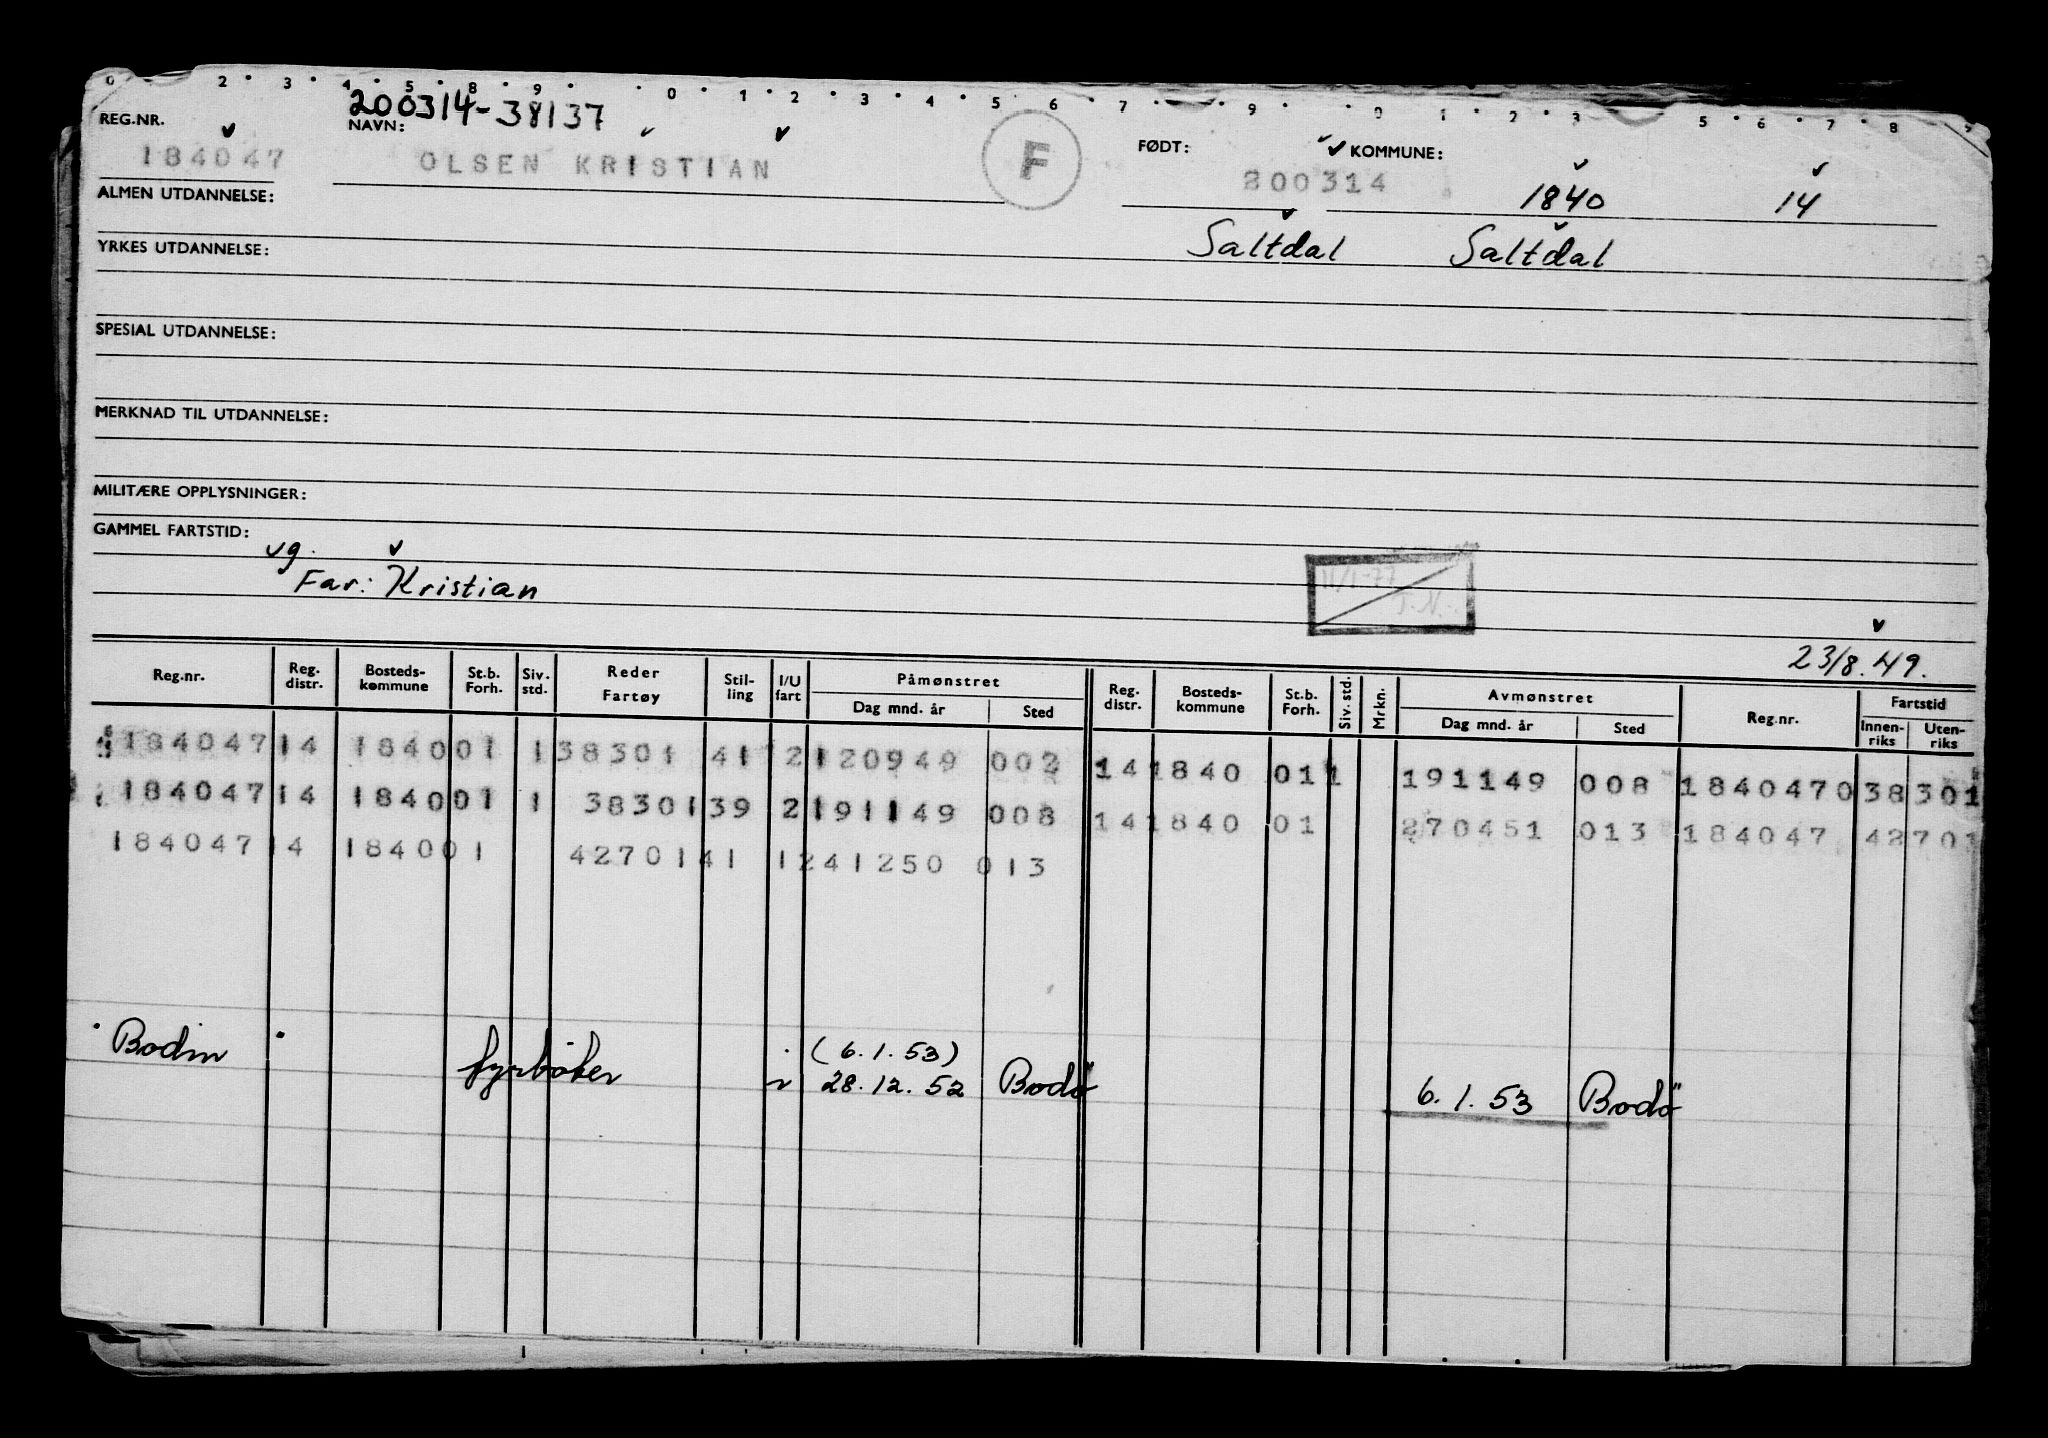 0 2 3 4 5 8 9 0 1 2 3 4 5 6 7 9 0 1 2 3 5 6 7 8 9
200314-38137
REG.NR. NAVN: FØDT: KOMMUNE:
184047 OLSEN KRISTIAN F 200314 1840 14
ALMEN UTDANNELSE:
Saltdal Saltdal
YRKES UTDANNELSE:
SPESIAL UTDANNELSE:
MERKNAD TIL UTDANNELSE:
MILITÆRE OPPLYSNINGER:
GAMMEL FARTSTID:
vg.
Far: Kristian
11/1-77
T.N.
23/8.49.
Reg.nr. Reg. distr. Bosteds-kommune St.b. Forh. Siv. std. Reder Fartøy Stil-ling I/U fart Påmønstret Dag mnd. år Sted Reg. distr. Bosteds-kommune St.b. Forh. Siv. std. Mrkn. Avmønstret Dag mnd. år Sted Reg.nr. Fartstid Innen-riks Uten-riks
184047 14 1840 01 1 38301 41 2 120949 002 14 1840 01 1 191149 008 184047 0 38301
184047 14 1840 01 1 38301 39 2 191149 008 14 1840 01 270451 013 184047 42701
184047 14 1840 01 42701 41 1 241250 013
Bodin fyrbøter (6.1.53)
28.12.52 Bodø 6.1.53 Bodø